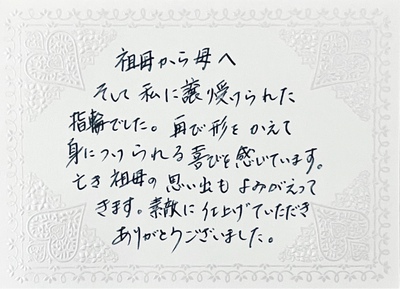 祖母から母へ
そして私に譲り受けられた
指輪でした。再び形をかえて
身につけられる喜びを感じています。
亡き祖母の思い出もよみがえって
きます。素敵に仕上げていただき
ありがとうございました。